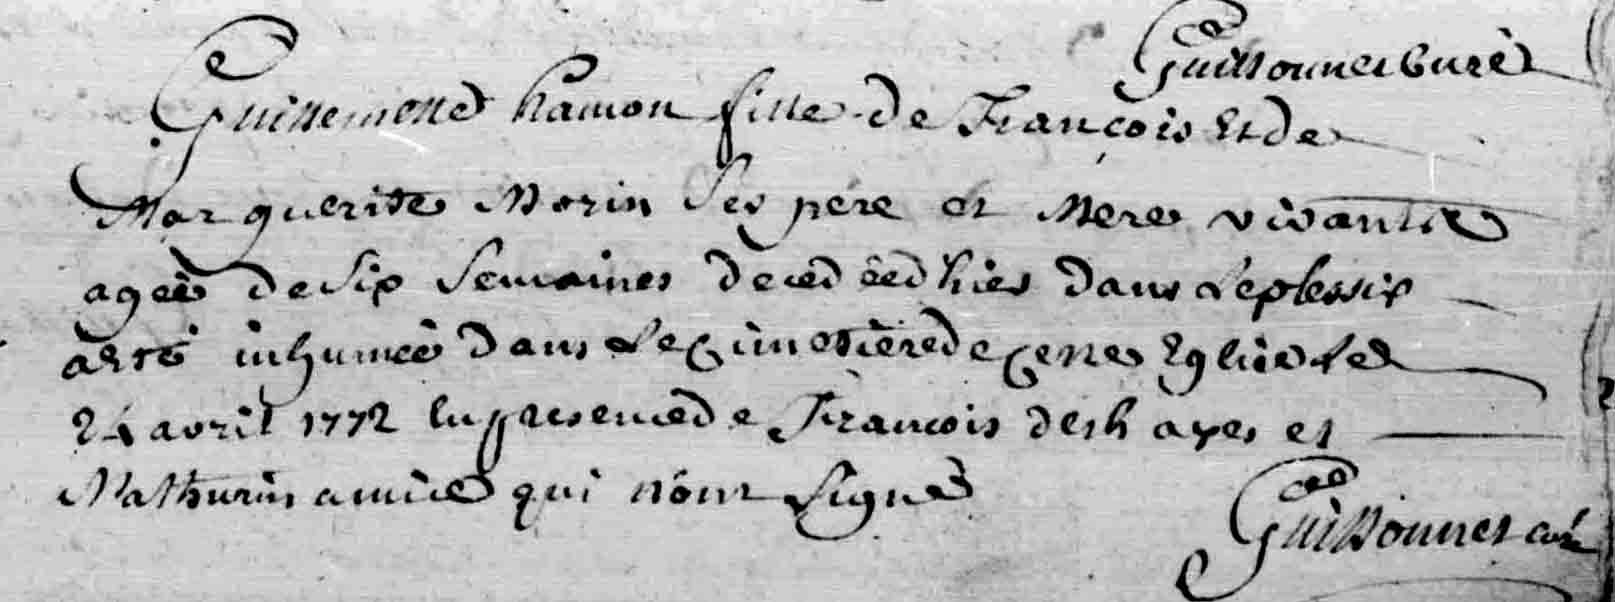 Guillonnet Curé
Guillemette hamon fille de François Et de
Marguerite Morin Ses pére et Mere vivants
agéé de Six Semaines decedéé d'hier dans Le plessix
a eté inhuméé dans Le Cimetiere de Cette Eglise Le
24 avril 1772 En presence de François deshayes et
Mathurin amice qui n'ont Signé
Guillonnet curé